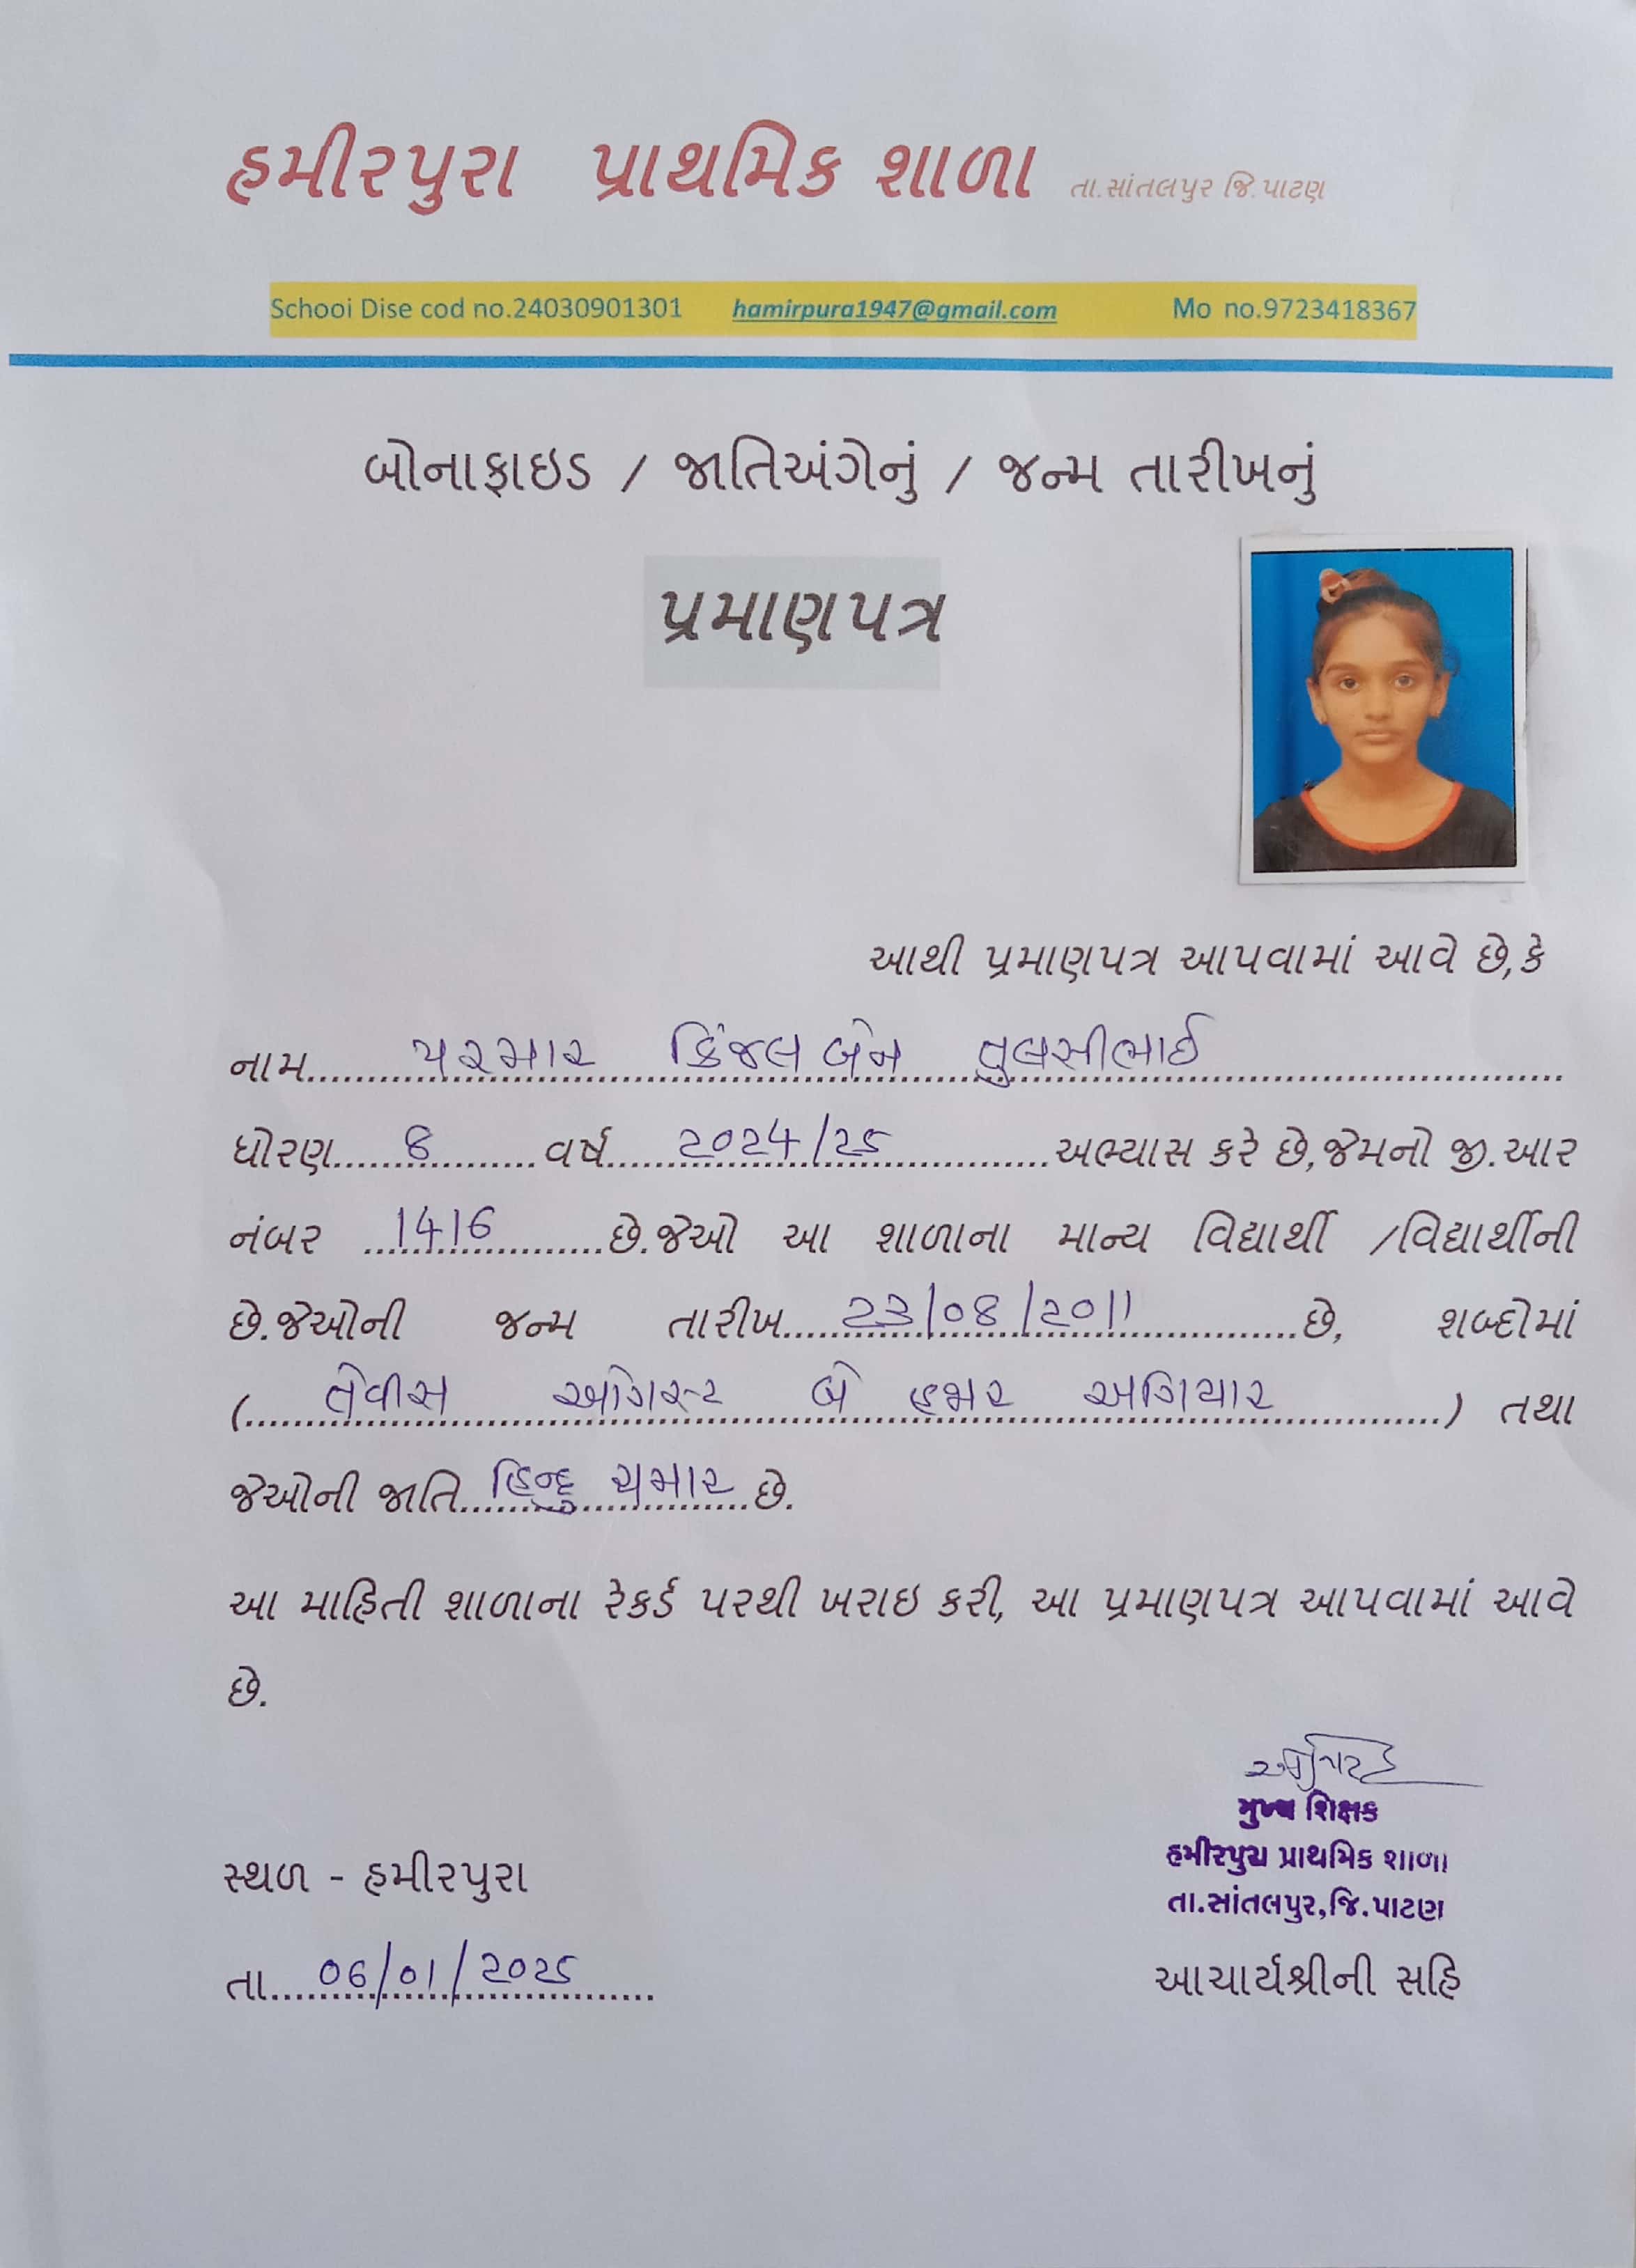 હમીરપુરા પ્રાથમિક શાળા તા.સાંતલપુર જિ.પાટણ
Schooi Dise cod no.24030901301 hamirpura1947@gmail.com Mo no.9723418367
બોનાફાઇડ / જાતિઅંગેનું / જન્મ તારીખનું
પ્રમાણપત્ર
આથી પ્રમાણપત્ર આપવામાં આવે છે,કે
નામ..... પરમાર કિંજલબેન તુલસીભાઈ .....
ધોરણ..... ૮ .....વર્ષ..... ૨૦૨૪/૨૫ .....અભ્યાસ કરે છે,જેમનો જી.આર
નંબર ..... 1416 .....છે.જેઓ આ શાળાના માન્ય વિદ્યાર્થી /વિદ્યાર્થીની
છે.જેઓની જન્મ તારીખ..... ૨૩/૦૮/૨૦૧૧ .....છે, શબ્દોમાં
(..... તેવીસ ઓગસ્ટ બે હજાર અગિયાર .....) તથા
જેઓની જાતિ..... હિન્દુ ચમાર .....છે.
આ માહિતી શાળાના રેકર્ડ પરથી ખરાઇ કરી, આ પ્રમાણપત્ર આપવામાં આવે
છે.
મુખ્ય શિક્ષક
હમીરપુરા પ્રાથમિક શાળા
તા.સાંતલપુર,જિ.પાટણ
સ્થળ - હમીરપુરા
આચાર્યશ્રીની સહિ
તા..... 06/01/૨૦૨૫ .....